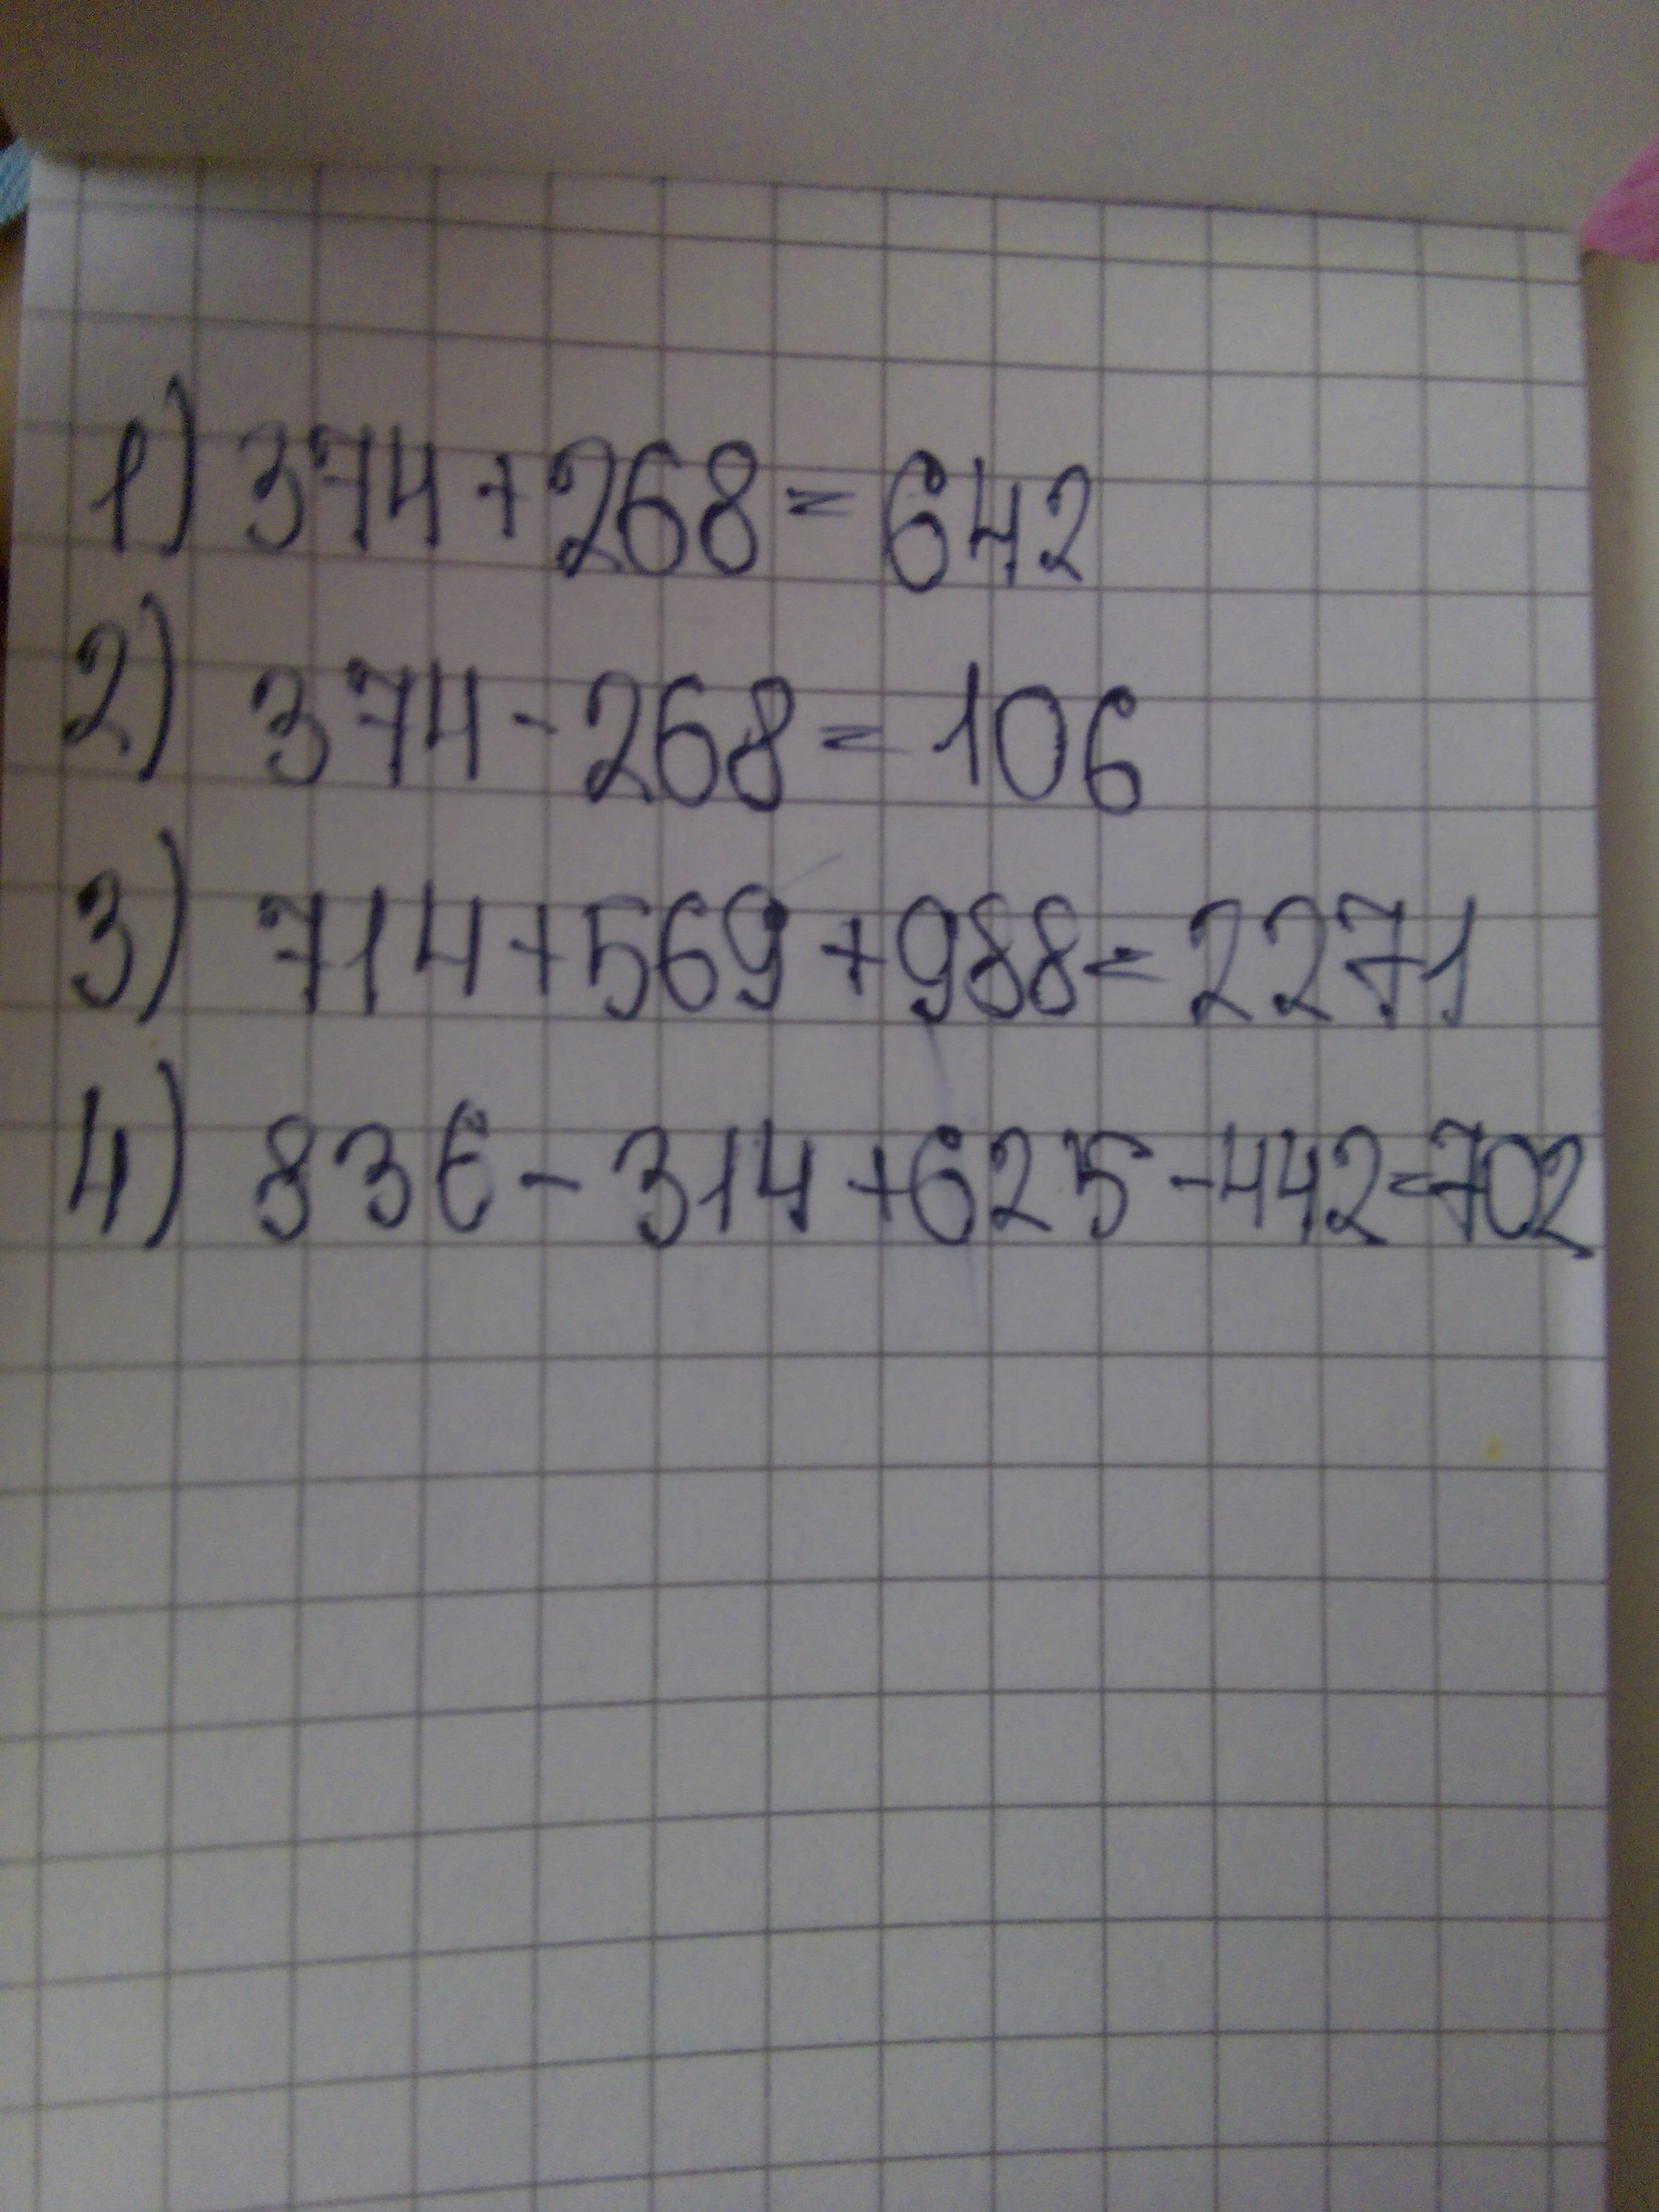 1) 374+268=642
2) 374-268=106
3) 714+569+988=2271
4) 836-314+625-442=702